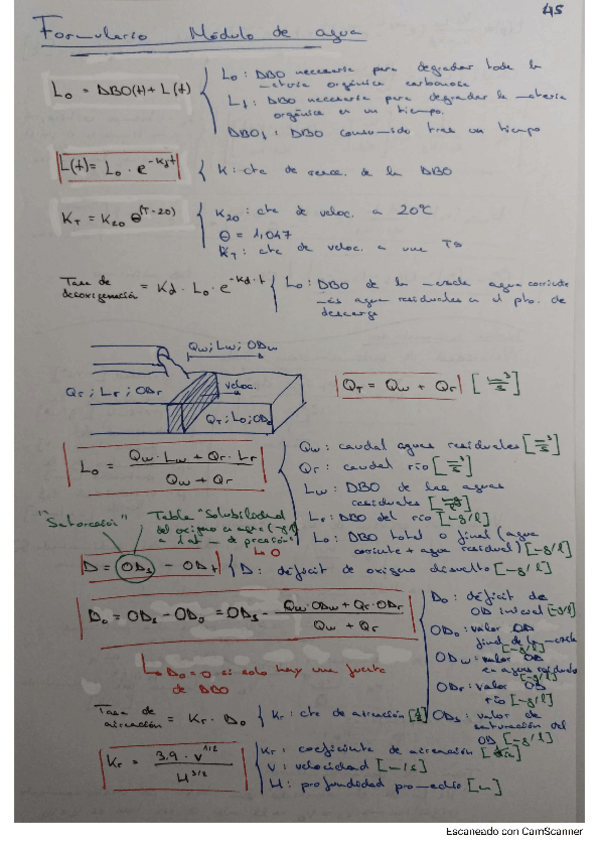 45
Formulario Módulo de agua
L₀ = DBO(t) + L(t)
L₀: DBO necesaria para degradar toda la
materia orgánica carbonosa
Lt: DBO necesaria para degradar la materia
orgánica en un tiempo.
DBOt: DBO consumido tras un tiempo
L(t) = L₀ · e^(-Kd·t)
K: cte de reacc. de la DBO
K_T = K₂₀ θ^(T-20)
K₂₀: cte de veloc. a 20ºC
θ = 1,047
K_T: cte de veloc. a una Tª
Tasa de desoxigenación = Kd · L₀ · e^(-Kd·t)
L₀: DBO de la mezcla agua corriente
más aguas residuales en el pto. de
descarga
Qw; Lw; ODw
Qr; Lr; ODr
veloc.
QT; L₀; OD₀
QT = Qw + Qr [m³/s]
L₀ = (Qw · Lw + Qr · Lr) / (Qw + Qr)
Qw: caudal aguas residuales [m³/s]
Qr: caudal río [m³/s]
Lw: DBO de las aguas
residuales [mg/l]
Lr: DBO del río [mg/l]
L₀: DBO total o final (agua
corriente + agua residual) [mg/l]
"Saturación"
Tabla "Solubilidad
del oxígeno en agua (mg/l)
a 1 atm de presión"
D = ODs - ODt
D: déficit de oxígeno disuelto [mg/l]
D₀ = ODs - OD₀ = ODs - (Qw · ODw + Qr · ODr) / (Qw + Qr)
D₀: déficit de
OD inicial [mg/l]
OD₀: valor OD
final de la mezcla
[mg/l]
ODw: valor OD
en aguas residuales
[mg/l]
ODr: valor OD
río [mg/l]
ODs: valor de
saturación del
OD [mg/l]
D₀ = 0 si solo hay una fuente
de DBO
Tasa de aireación = Kr · D₀
Kr: cte de aireación
Kr = (3.9 · v^(1/2)) / H^(3/2)
Kr: coeficiente de aireación
V: velocidad [m/s]
H: profundidad promedio [m]
Escaneado con CamScanner